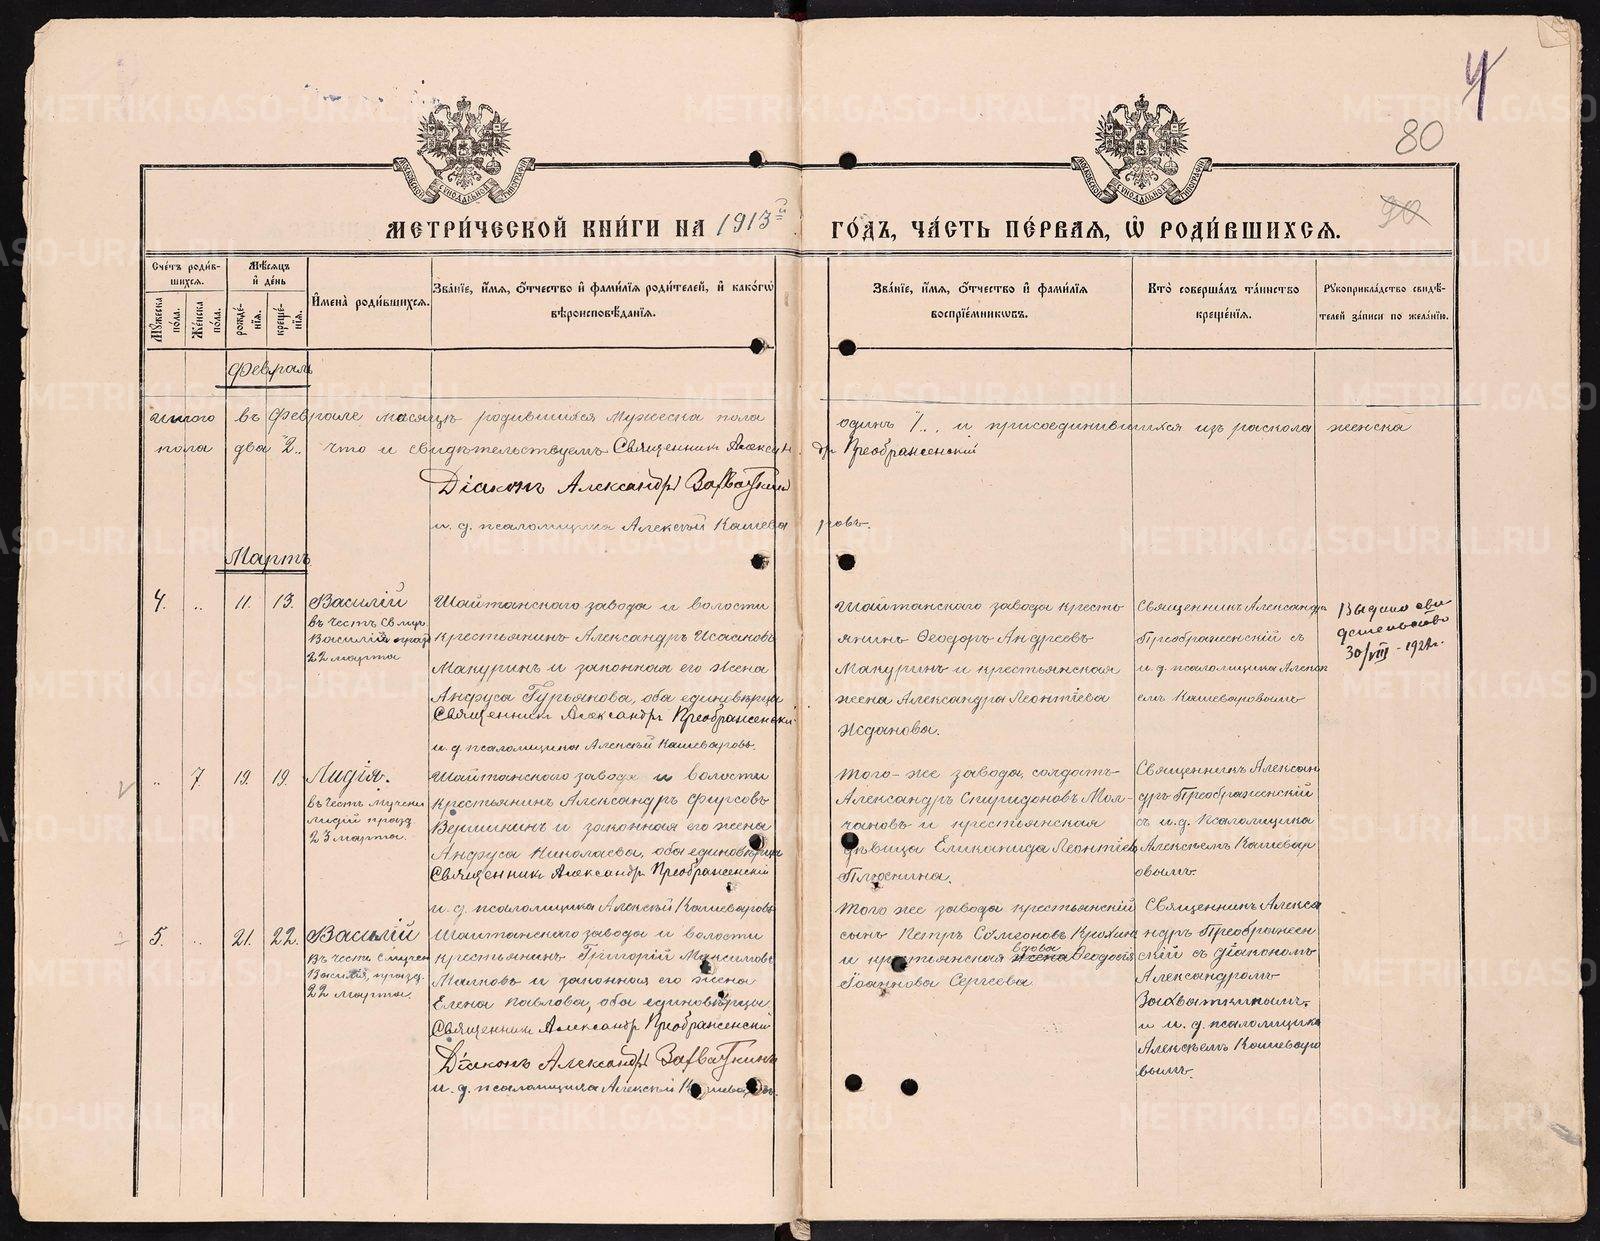 4
80
90
МЕТРИ́ЧЕСКОЙ КНИ́ГИ НА 1913й ГО́ДЪ, ЧА́СТЬ ПЕ́РВАЯ, Ѿ РОДИ́ВШИХСѦ.
Сче́тъ роди́в-
шихсѧ.
Мꙋ́жеска по́ла.
Же́нска по́ла.
Мѣ́сѧцъ и҆ де́нь
рожде́-нїѧ.
креще́-нїѧ.
И҆мена̀ роди́вшихсѧ.
Зва́нїе, и҆́мѧ, ѻ҆́тчество и҆ фами́лїѧ роди́телей, и҆ како́гѡ
вѣроисповѣ́данїѧ.
Зва́нїе, и҆́мѧ, ѻ҆́тчество и҆ фами́лїѧ
воспрїе́мниковъ.
Кто̀ соверша́лъ та́инство
креще́нїѧ.
Рꙋкоприкла́дство свидѣ́-
телей за́писи по жела́нїю.
Февраль
Итого въ Феврале месяцѣ родившихся мужеска пола один 1.., и присоединившихся изъ раскола женска
пола два 2.. что и свидѣтельствуемъ Священник Александр Преображенскій
Діаконъ Александръ Захваткин
и. д. псаломщика Алексѣй Кашеваровъ.
Мартъ
4. „ 11. 13. Василій
въ честь Св. муч.
Василія празд
22 марта
Шайтанского завода и волости
крестьянинъ Александръ Исааковъ
Макуринъ и законная его жена
Анфуса Гурьянова, оба единовѣрцы
Священник Александръ Преображенскій
и. д. псаломщика Алексѣй Кашеваровъ.
Шайтанского завода кресть
янинъ Феодоръ Андреевъ
Макуринъ и крестьянская
жена Александра Леонтіева
Жданова.
Священникъ Александръ
Преображенскій съ
и. д. псаломщика Алексѣ
емъ Кашеваровымъ
Выдано сви
детельство
30/VIII - 192
„ 7. 12. 19. Лидія.
въ честь мучени
Лидіи празд.
23 марта.
Шайтанского завода и волости
крестьянинъ Александръ Фирсовъ
Вершининъ и законная его жена
Анфуса Николаева, оба единовѣрцы
Священник Александръ Преображенскій
и. д. псаломщика Алексѣй Кашеваровъ
Того-же завода, солдатъ
Александръ Спиридоновъ Мол-
чановъ и крестьянская
дѣвица Еликанида Леонтіев
Плюснина.
Священникъ Алексан
дръ Преображенскій
съ и. д. псаломщика
Алексѣемъ Кашевар
овымъ.
5. „ 21. 22. Василій
Въ честь с мучен
Василія, празд.
22 марта.
Шайтанского завода и волости
крестьянинъ Григорій Максимовъ
Малковъ и законная его жена
Елена Павлова, оба единовѣрцы
Священник Александр Преображенскій
Діаконъ Александръ Захваткинъ
и. д. псаломщика Алексѣй Кашеваровъ.
Того же завода крестьянскій
сынъ Петръ Сѵмеоновъ Крохин
и крестьянская жена вдова Феодосія
Іоаннова Сергеева
Священникъ Алекса
ндръ Преображен
скій съ діакономъ
Александромъ
Захваткинымъ,
и и. д. псаломщика
Алексѣемъ Кашеваро
вымъ.
METRIKI.GASO-URAL.RU